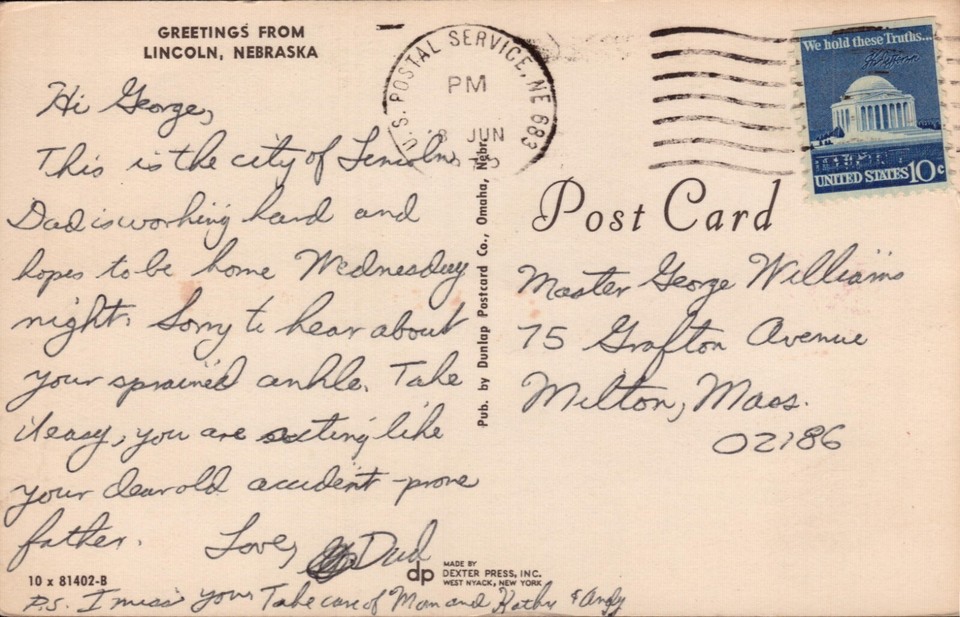 GREETINGS FROM
LINCOLN, NEBRASKA
Hi George,
This is the city of Lincoln
Dad is working hard and
hopes to be home Wednesday
night. Sorry to hear about
your sprained ankle. Take
it easy, you are acting like
your dear old accident-prone
father.
Love, Dad
10 x 81402-B
P.S. I miss you. Take care of Mom and Kathy & Andy
Pub. by Dunlap Postcard Co., Omaha, Nebr.
dp
MADE BY
DEXTER PRESS, INC.
WEST NYACK, NEW YORK
U.S. POSTAL SERVICE, NE 683
PM
JUN
We hold these Truths...
UNITED STATES 10c
Post Card
Master George Williams
75 Grafton Avenue
Milton, Mass.
02186